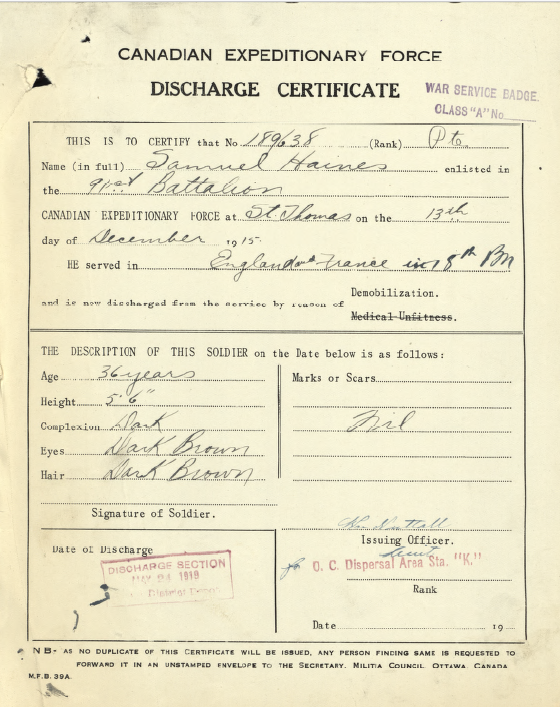 CANADIAN EXPEDITIONARY FORCE
DISCHARGE CERTIFICATE
WAR SERVICE BADGE.
CLASS "A" No
THIS IS TO CERTIFY that No 189638 (Rank) Pte.
Name (in full) Samuel Haines enlisted in
the 91st Battalion
CANADIAN EXPEDITIONARY FORCE at St. Thomas on the 13th
day of December 1915.
HE served in England and France 18th Bn
Demobilization.
and is now discharged from the service by reason of
Medical Unfitness.
THE DESCRIPTION OF THIS SOLDIER on the Date below is as follows:
Age 36 years
Marks or Scars
Height 5' 6"
Complexion Dark
Nil
Eyes Dark Brown
Hair Dark Brown
Signature of Soldier.
Issuing Officer.
Lieut
Date of Discharge
DISCHARGE SECTION
MAY 24 1919
District Depot
for O. C. Dispersal Area Sta. "K."
Rank
Date 19
NB- AS NO DUPLICATE OF THIS CERTIFICATE WILL BE ISSUED, ANY PERSON FINDING SAME IS REQUESTED TO
FORWARD IT IN AN UNSTAMPED ENVELOPE TO THE SECRETARY, MILITIA COUNCIL, OTTAWA, CANADA
M.F.B. 39A.